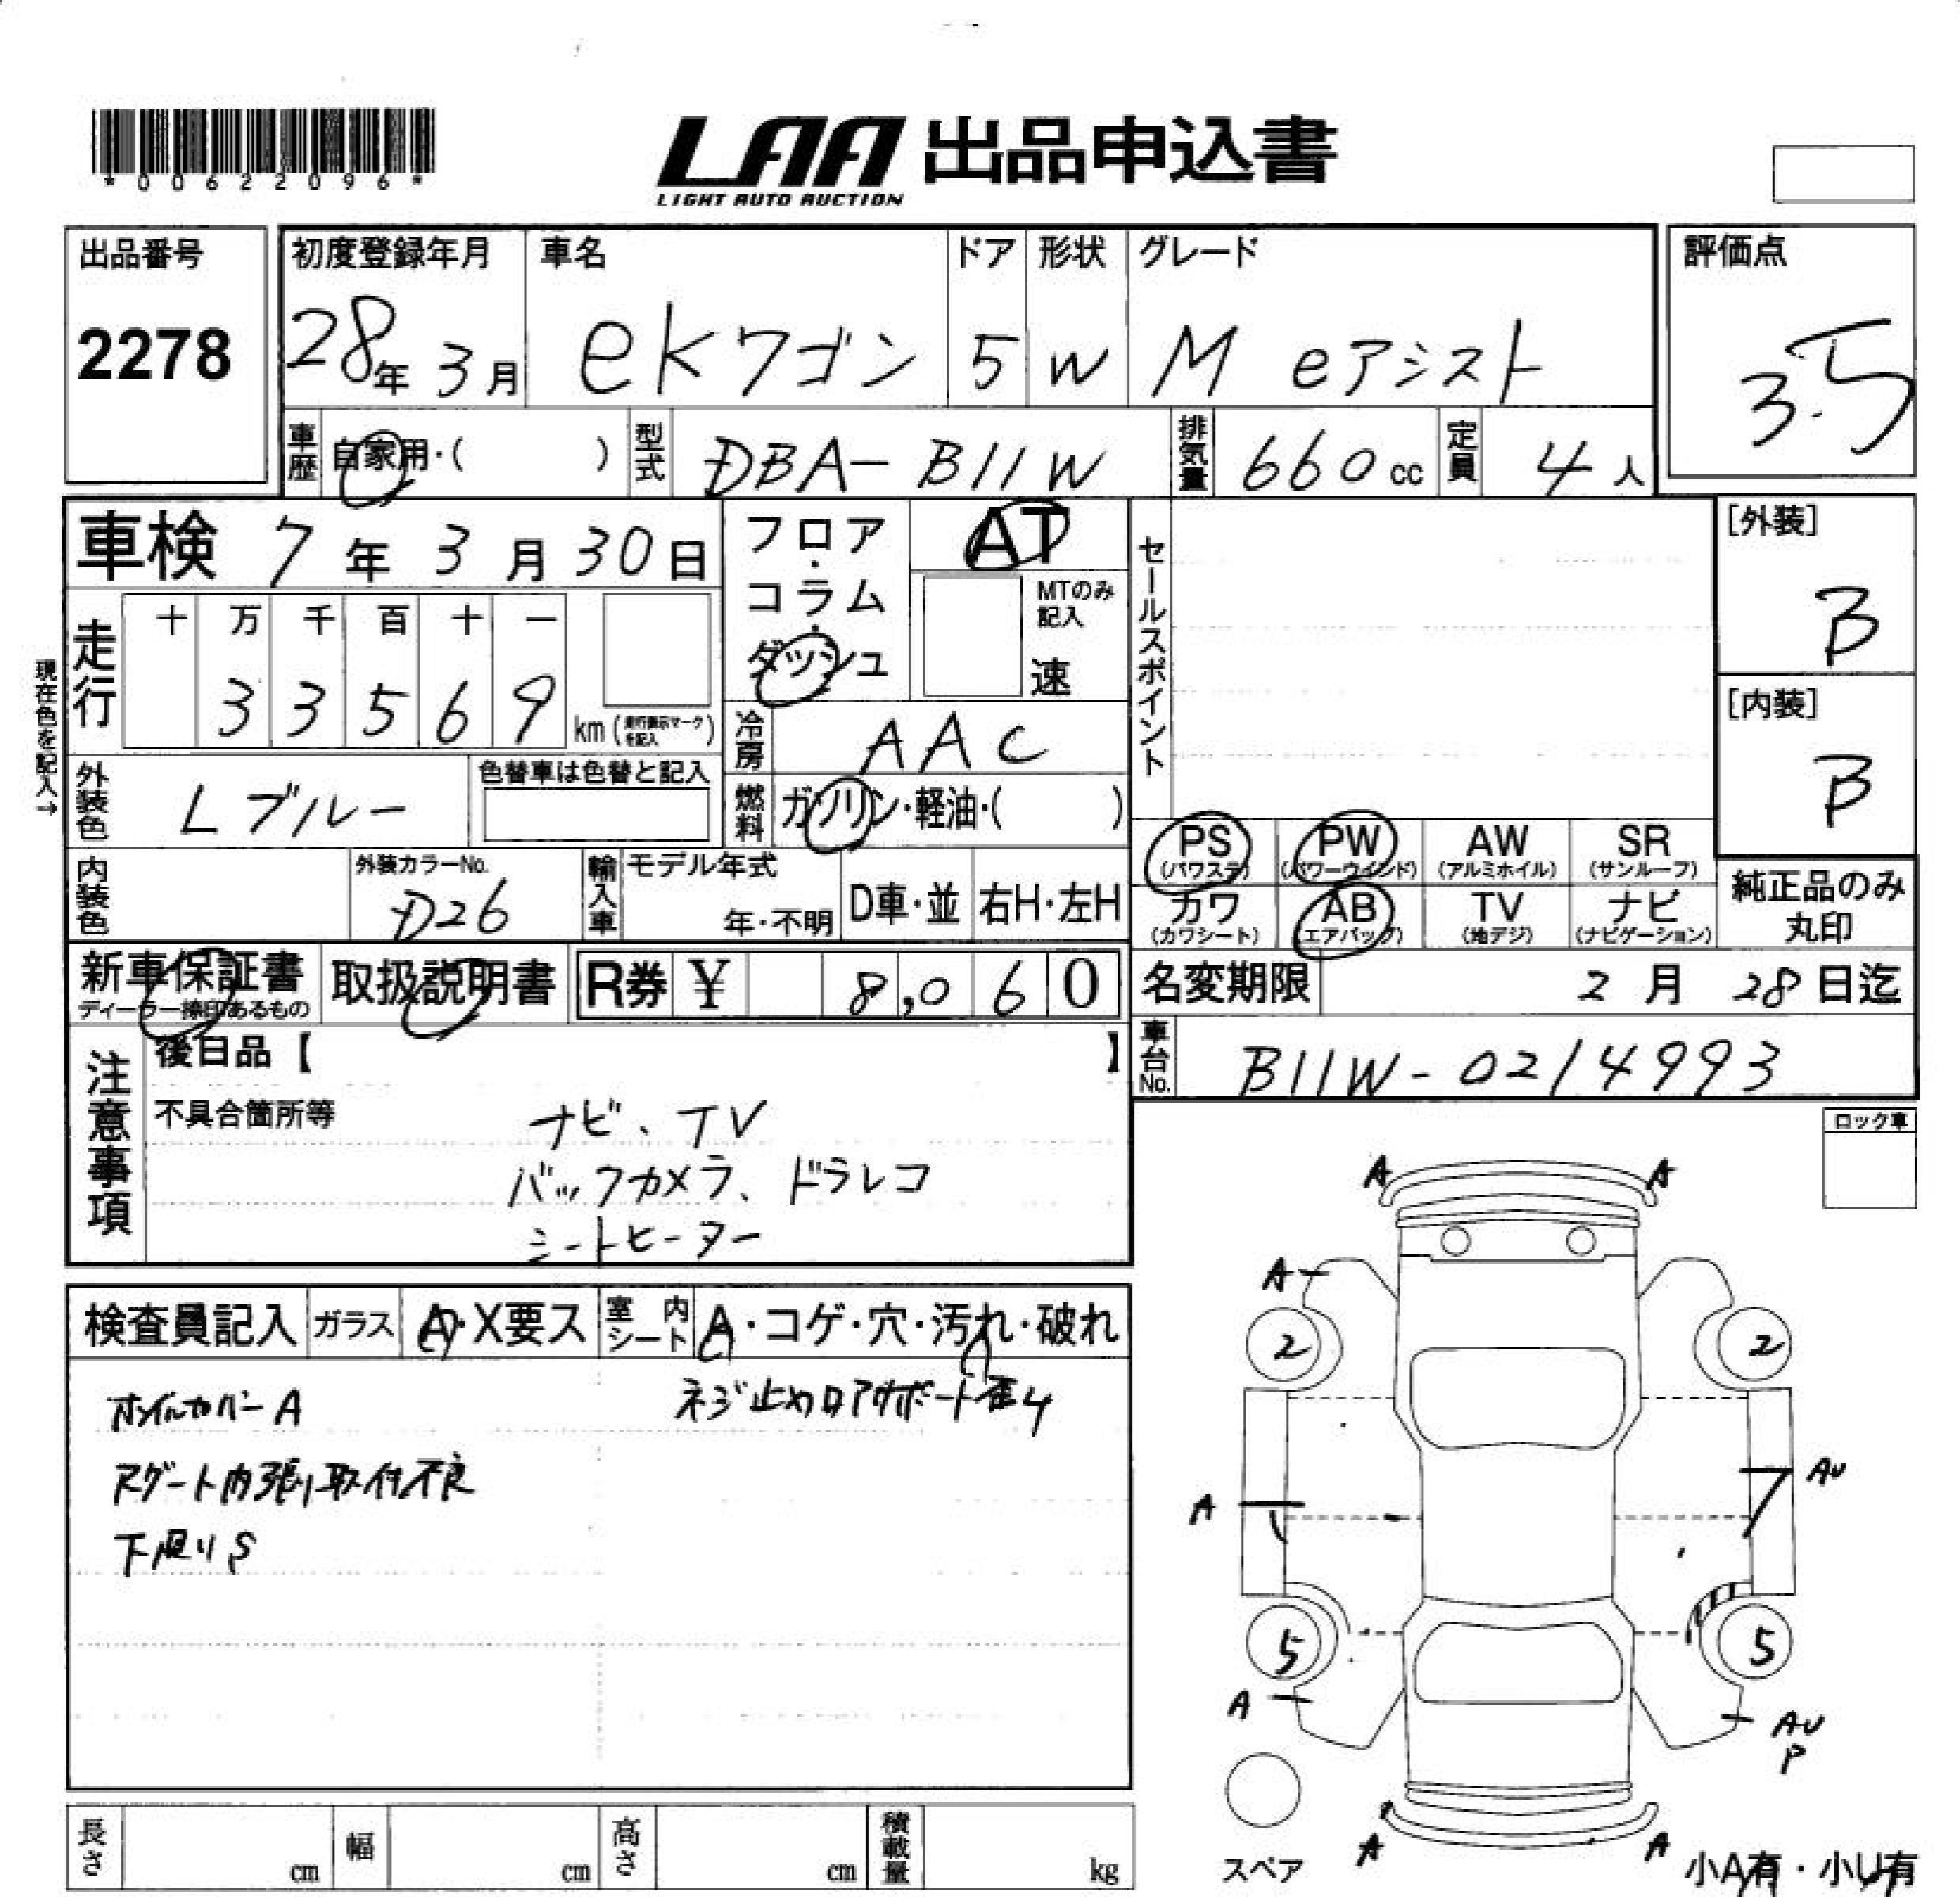 *00622096*
LAA 出品申込書
LIGHT AUTO AUCTION
出品番号
2278
初度登録年月
28年 3月
車名
ekワゴン
ドア
5
形状
W
グレード
M eアシスト
評価点
3.5
車歴
自家用・( )
型式
DBA-B11W
排気量
660cc
定員
4人
車検 7年 3月 30日
フロア・コラム・ダッシュ
AT
MTのみ記入
速
セールスポイント
[外装]
B
[内装]
B
現在色を記入→
走行
十 万 千 百 十 一
3 3 5 6 9
km (走行表示マークを記入)
冷房
AAC
外装色
Lブルー
色替車は色替と記入
燃料
ガソリン・軽油・( )
内装色
外装カラーNo.
D26
輸入車
モデル年式
年・不明
D車・並
右H・左H
PS (パワステ)
PW (パワーウインド)
AW (アルミホイル)
SR (サンルーフ)
カワ (カワシート)
AB (エアバッグ)
TV (地デジ)
ナビ (ナビゲーション)
純正品のみ丸印
新車保証書
ディーラー捺印あるもの
取扱説明書
R券 ¥ 8,060
名変期限 2月 28日迄
車台No.
B11W-0214993
注意事項
後日品【 】
不具合箇所等
ナビ、TV
バックカメラ、ドラレコ
シートヒーター
ロック車
検査員記入
ガラス
A・X要ス
室内シート
A・コゲ・穴・汚れ・破れ
ホイルカバーA
ネジ止めロアサポート歪み
Rゲート内張り取付不良
下廻りS
A A
A
2 2
A
AU
5 5
A
AU
P
A A
スペア
小A有・小U有
長さ cm
幅 cm
高さ cm
積載量 kg